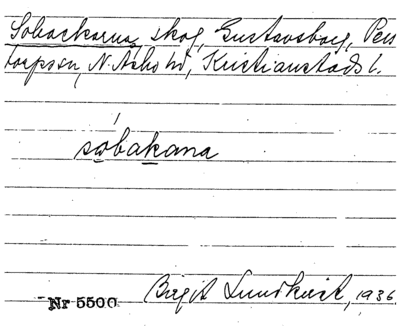 Sobackarna, skog, Gustavsborg, Pers
torpssn, N. Åsbo hd, Kristianstads l.
sobakana
Nr 5500 Birgit Lundkvist, 1936